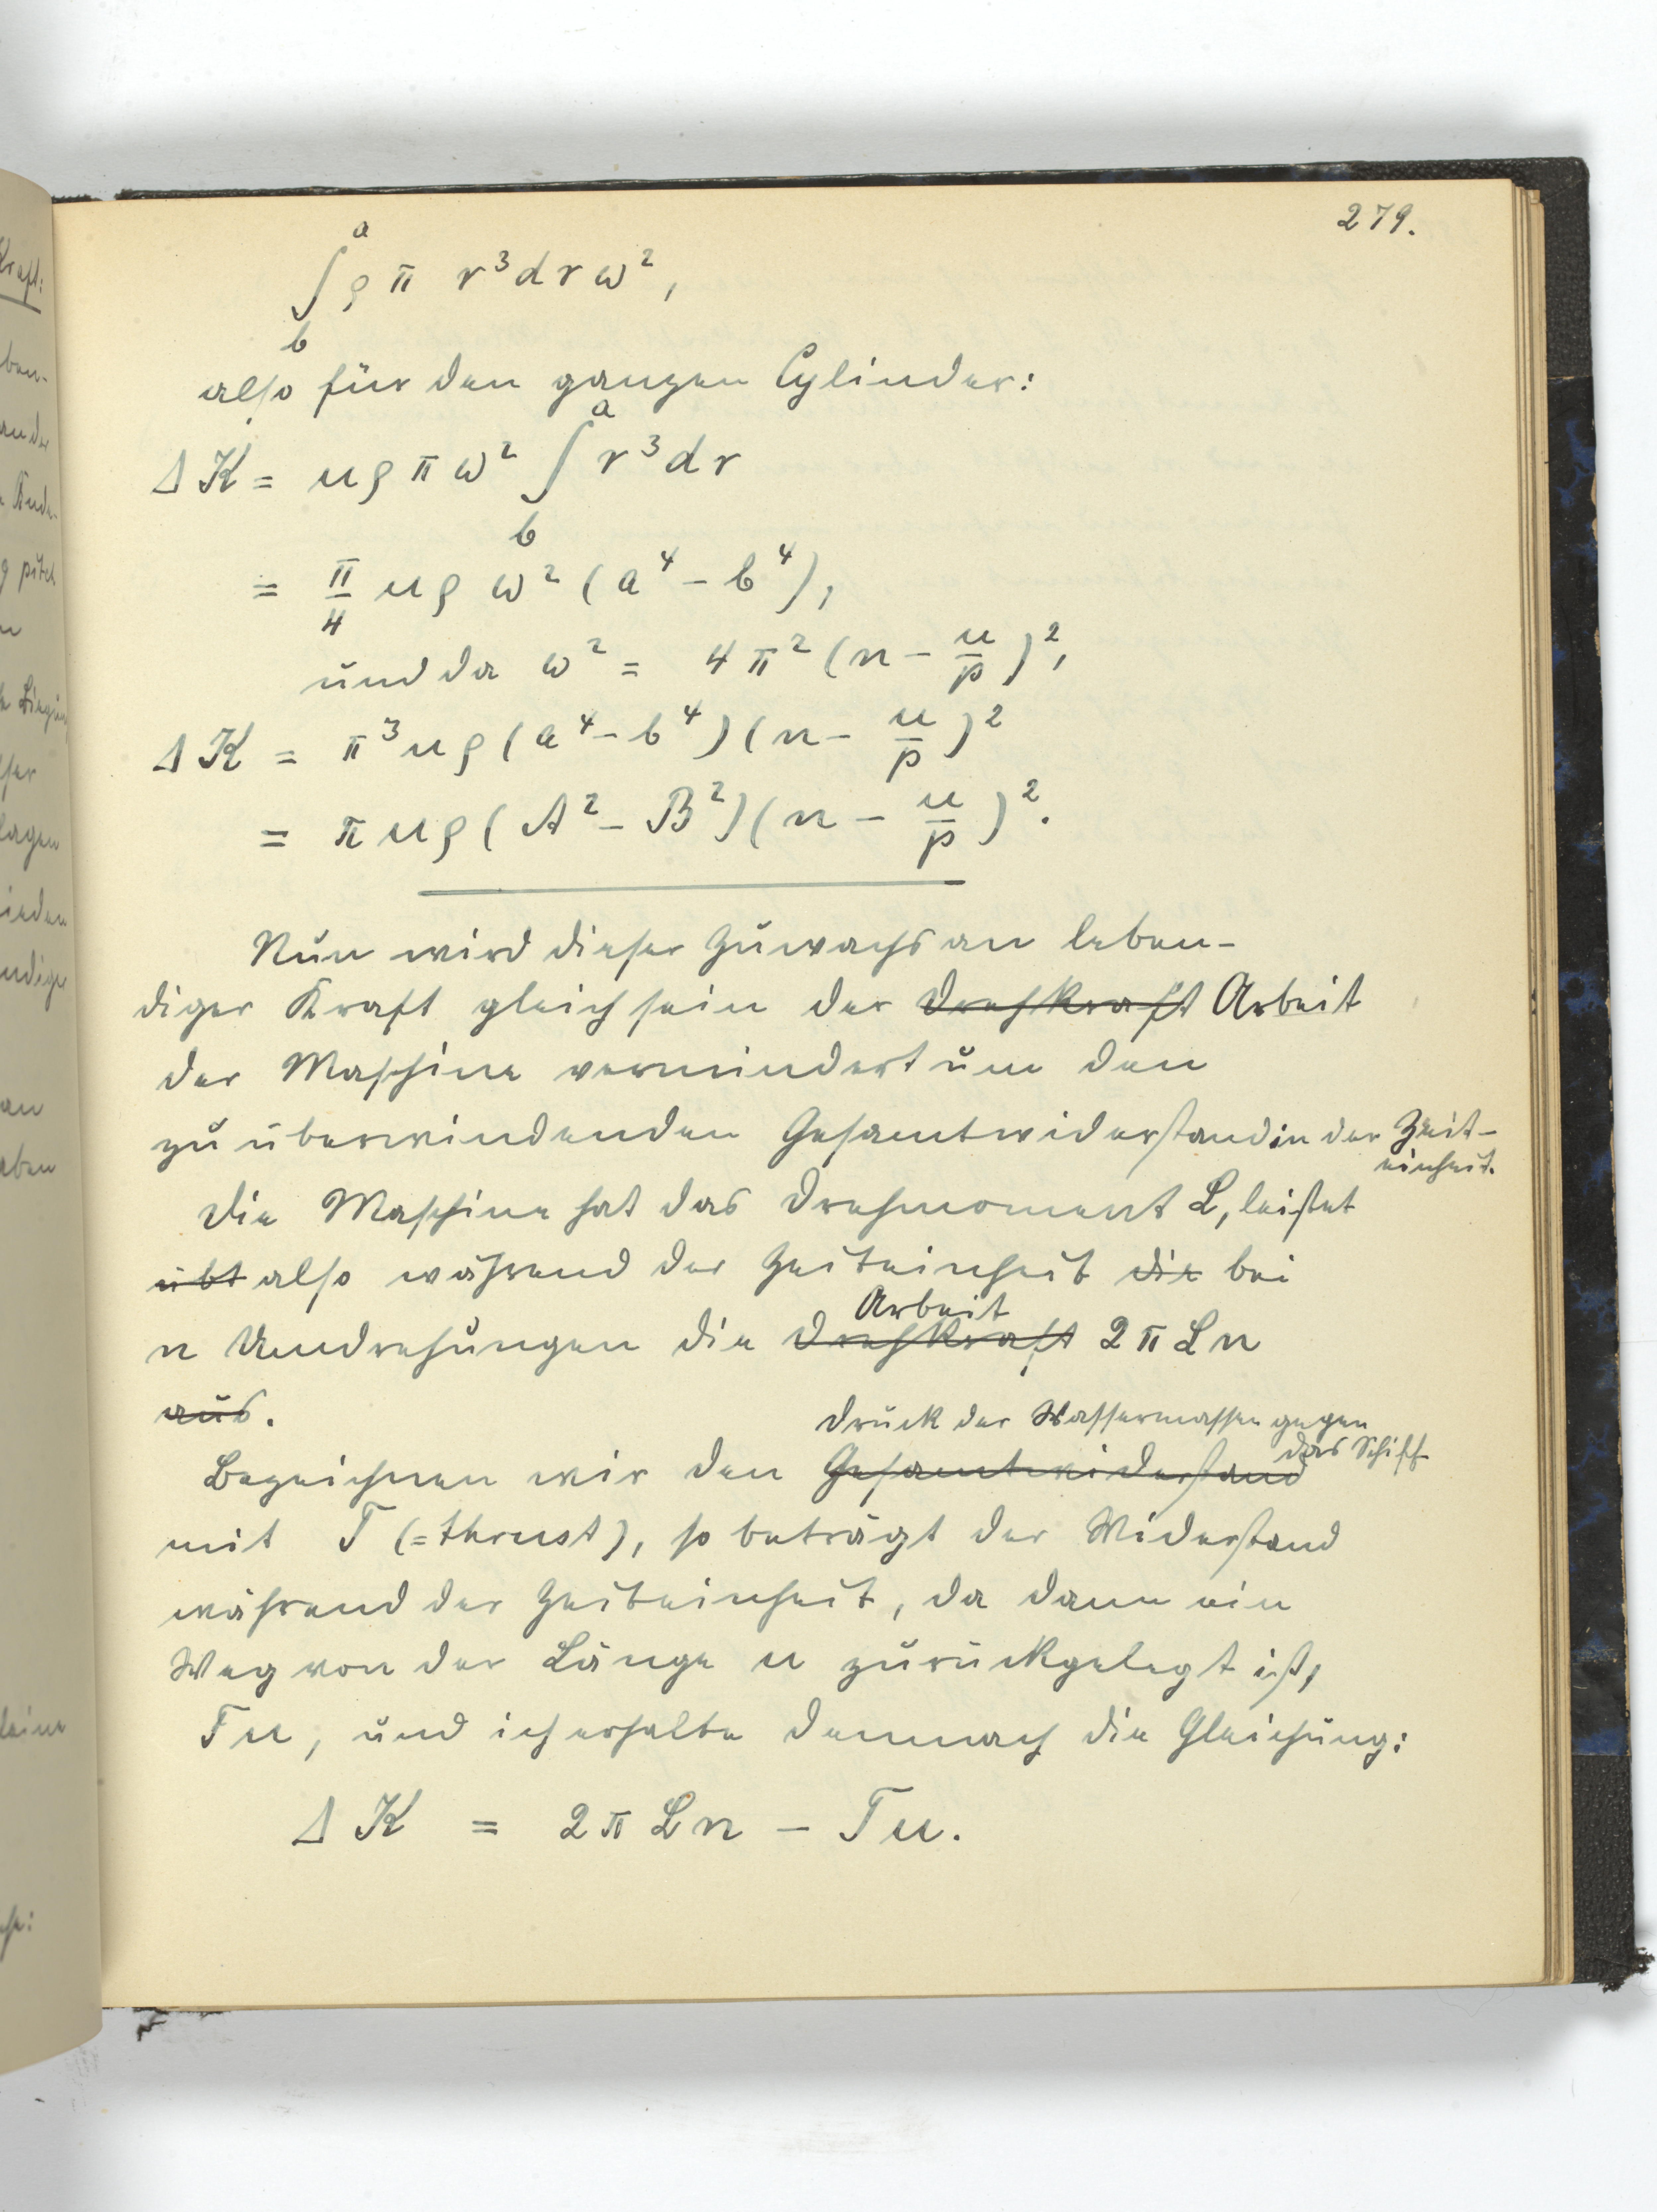 279.
∫_b^a ϱ π r³ dr ω²,
also für den ganzen Cylinder:
Δ K = u ϱ π ω² ∫_b^a r³ dr
= π/4 u ϱ ω² (a⁴ - b⁴),
und da ω² = 4 π² (n - u/p)²,
Δ K = π³ u ϱ (a⁴ - b⁴) (n - u/p)²
= π u ϱ (A² - B²) (n - u/p)².
Nun wird dieser Zuwachs an leben-
diger Kraft gleich sein der Drehkraft Arbeit
der Maschine vermindert um den
zu überwindenden Gesamtwiderstand in der Zeit-
einheit.
Die Maschine hat das Drehmoment L, leistet
übt also während der Zeiteinheit die bei
Arbeit
n Umdrehungen die Drehkraft 2 π L n
aus.
Druck der Wassermassen gegen
das Schiff
Bezeichnen wir den Gesamtwiderstand
mit T (= thrust), so beträgt der Widerstand
während der Zeiteinheit, da dann ein
Weg von der Länge u zurückgelegt ist,
T u, und ich erhalte demnach die Gleichung:
Δ K = 2 π L n - T u.
Kraft:
ben-
pitch
lagen
aben